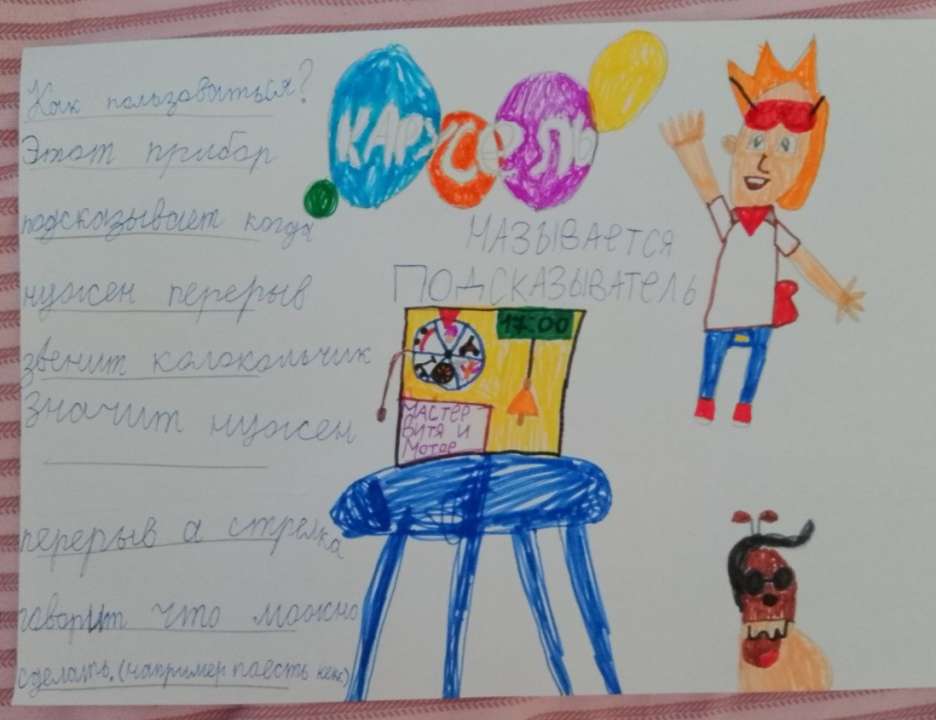 Как пользоваться?
Этот прибор
подсказывает когда
нужен перерыв
звенит колокольчик
значит нужен
перерыв а стрелка
говорит что можно
сделать. (например поесть кекс)
КАРУСЕЛЬ
НАЗЫВАЕТСЯ
ПОДСКАЗЫВАТЕЛЬ
17:00
МАСТЕР
ВИТЯ И
МОТОР